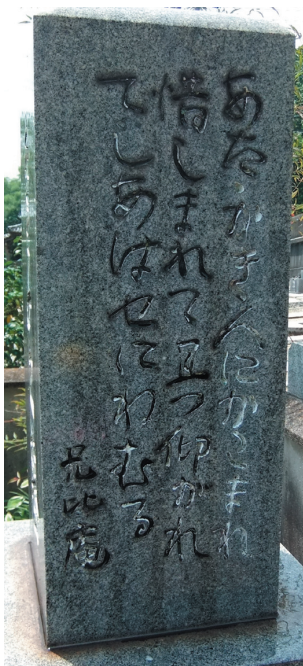 あたゝかき人にかこまれ
惜しまれて且つ仰がれ
てしあはせにねむる
兄比庵